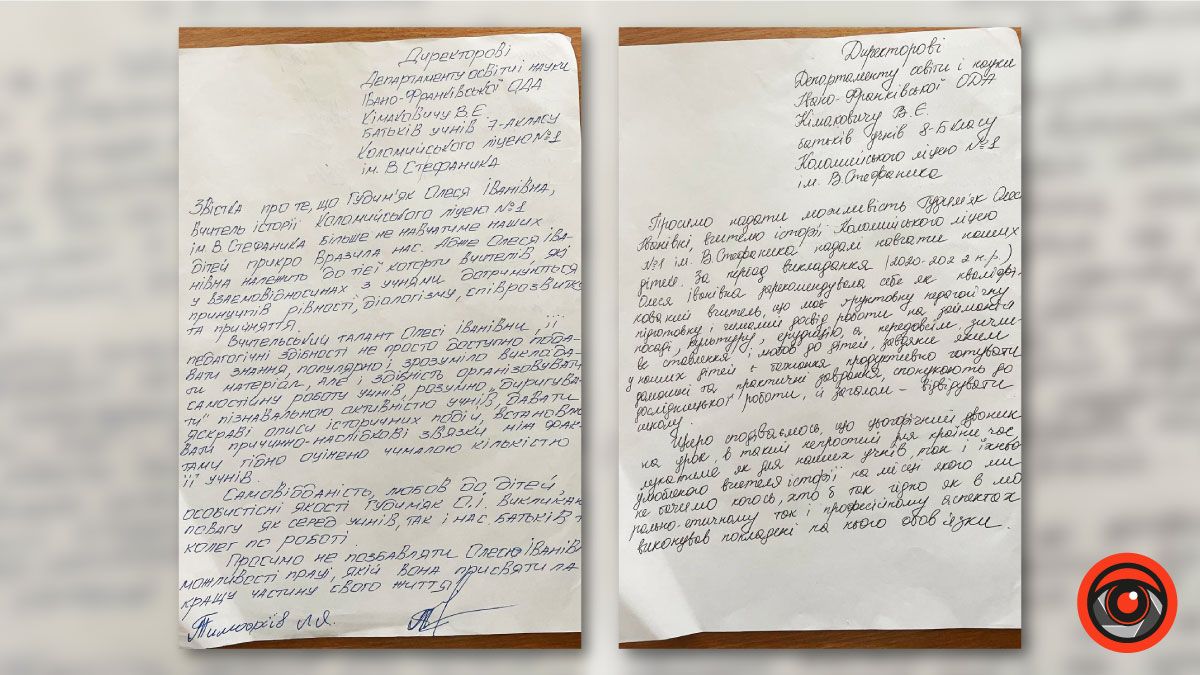 Директорові
Департаменту освіти і науки
Івано-Франківської ОДА
Кімаковичу В.Є.
батьків учнів 7-А класу
Коломийського ліцею №1
ім. В. Стефаника
Звістка про те, що Гудим'як Олеся Іванівна,
вчитель історії Коломийського ліцею №1
ім. В. Стефаника більше не навчатиме наших
дітей прикро вразила нас. Адже Олеся Іва-
нівна належить до тієї когорти вчителів, які
у взаємовідносинах з учнями дотримуються
принципів рівності, діалогізму, співрозвитку
та прийняття.
Вчительський талант Олесі Іванівни, її
педагогічні здібності не просто доступно пода-
вати знання, популярно і зрозуміло виклада-
ти матеріал, але і здібність організовувати
самостійну роботу учнів, розумно "диригува-
ти" пізнавальною активністю учнів, давати
яскраві описи історичних подій, встановлю
вати причинно-наслідкові зв'язки між фак-
тами гідно оцінено чималою кількістю
її учнів.
Самовідданість, любов до дітей,
особистісні якості Гудим'як О.І. викликаю
повагу як серед учнів, так і нас батьків т
колег по роботі.
Просимо не позбавляти Олесю Іванівн
можливості праці, якій вона присвятила
кращу частину свого життя
Тимофіїв Л.Я.
Директорові
Департаменту освіти і науки
Івано-Франківської ОДА
Кімаковичу В.Є.
батьків учнів 8-Б класу
Коломийського ліцею №1
ім. В. Стефаника
Просимо надати можливість Гудим'як Олес
Іванівні, вчителю історії Коломийського ліцею
№1 ім. В. Стефаника надалі навчати наших
дітей. За період викладання (2020-2022 н.р.)
Олеся Іванівна зарекомендувала себе як кваліфі-
кований вчитель, що має ґрунтовну педагогічну
підготовку і чималий досвід роботи на займаній
посаді, культуру, ерудицію, а, передовсім, зичли-
ве ставлення і любов до дітей, завдяки яким
у наших дітей є бажання продуктивно готувати
домашні та практичні завдання, спонукають до
дослідницької роботи, й загалом - відвідувати
школу.
Щиро сподіваємось, що цьогорічний дзвоник
на урок, в такий непростий для країни час,
лунатиме як для наших учнів, так і їхньо
улюбленого вчителя історії на місці якого ми
не бачимо когось, хто б так гідно як в мо
рально-етичному так і професійному аспектах
виконував покладені на нього обов'язки.